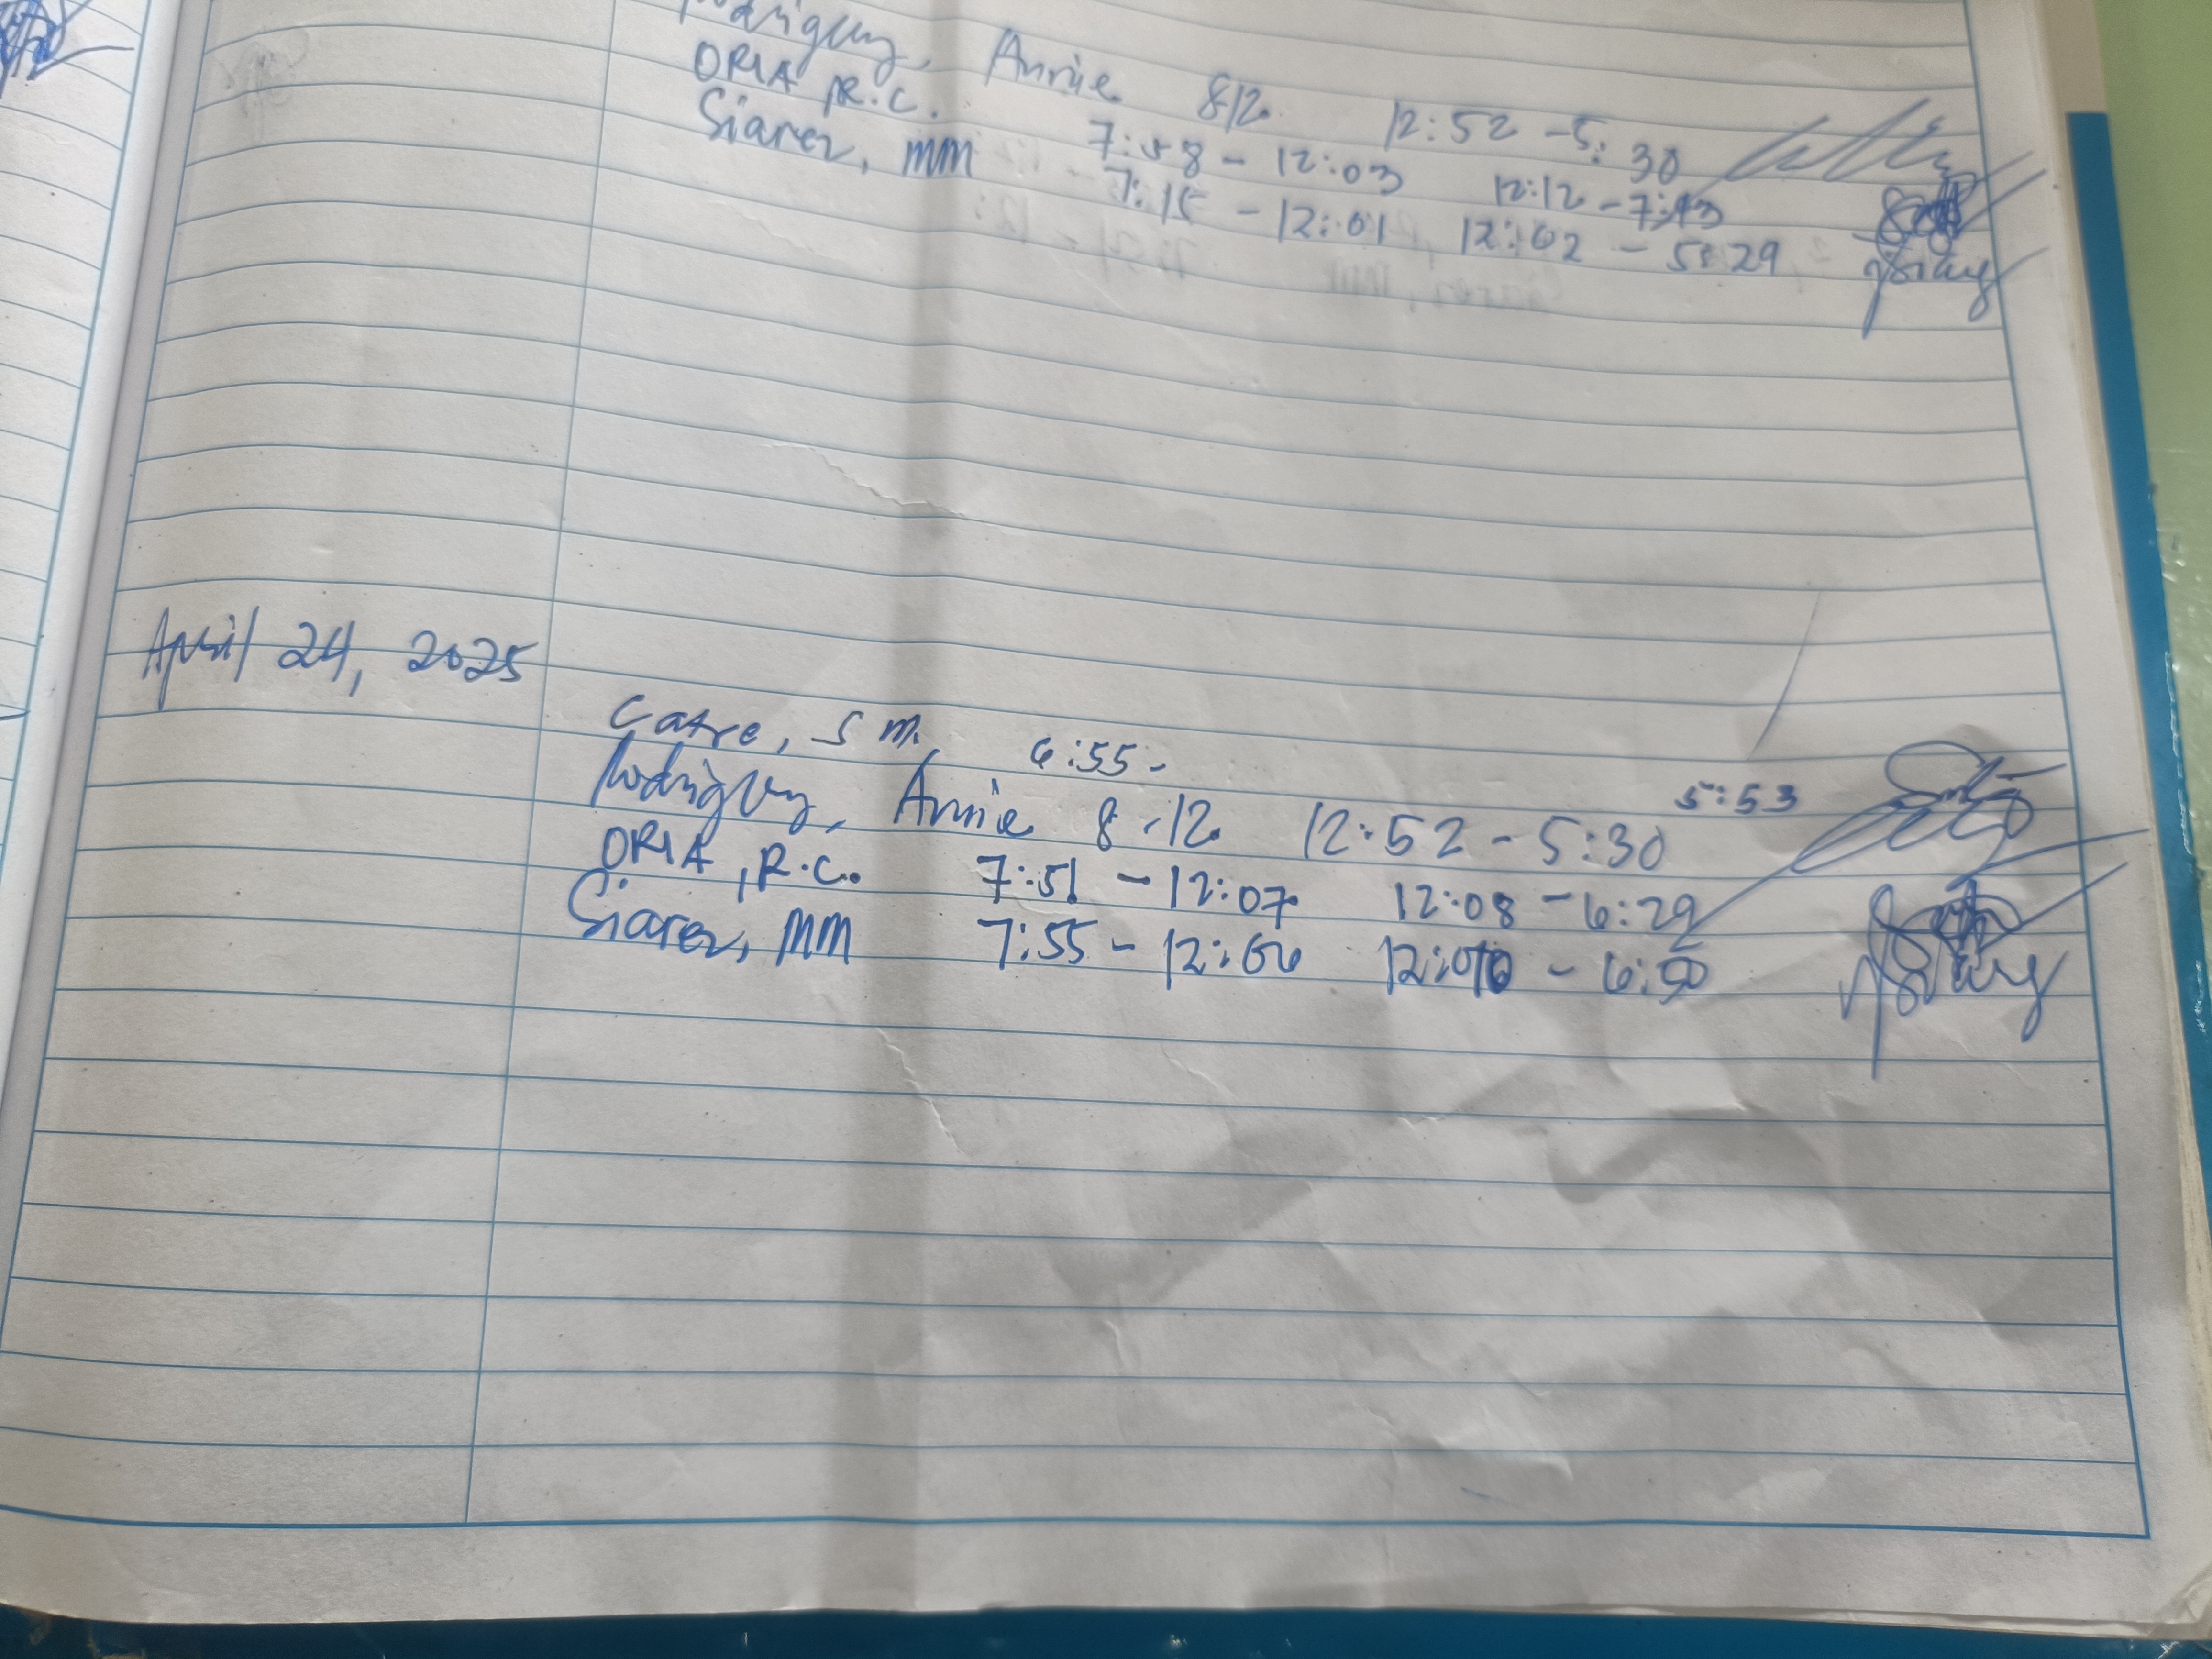 Annie 8-12 12:52 - 5:30
ORIA, R.C. 7:58 - 12:03 12:12 - 7:43
Siarez, MM 7:15 - 12:01 12:02 - 5:29
April 24, 2025
Catre, S M. 6:55 - 5:53
Rodriguez, Annie 8-12 12:52 - 5:30
ORIA, R.C. 7:51 - 12:07 12:08 - 6:29
Siarez, MM 7:55 - 12:06